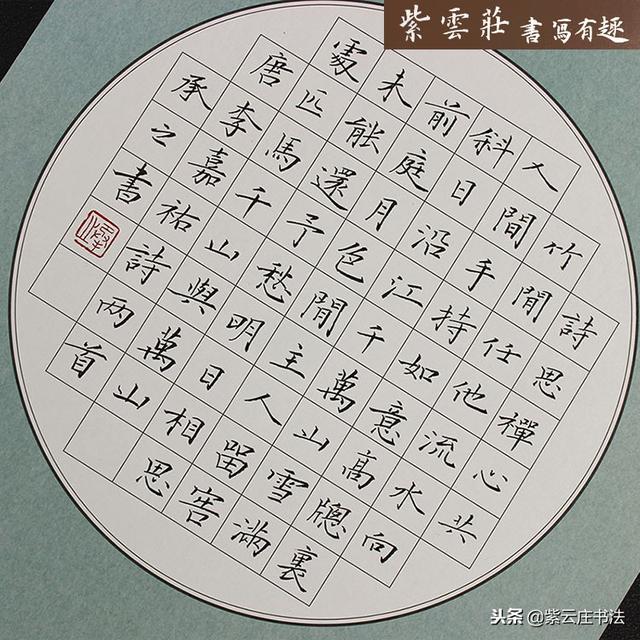 紫雲莊 書寫有趣
詩思禪心共
竹閒任他流水向
人間手持如意高牕裏
斜日沿江千萬山雪滿
前庭月色閒主人留客
未能還予愁明日相思
處匹馬千山與萬山
唐李嘉祐詩兩首
承之書
头条 @紫云庄书法